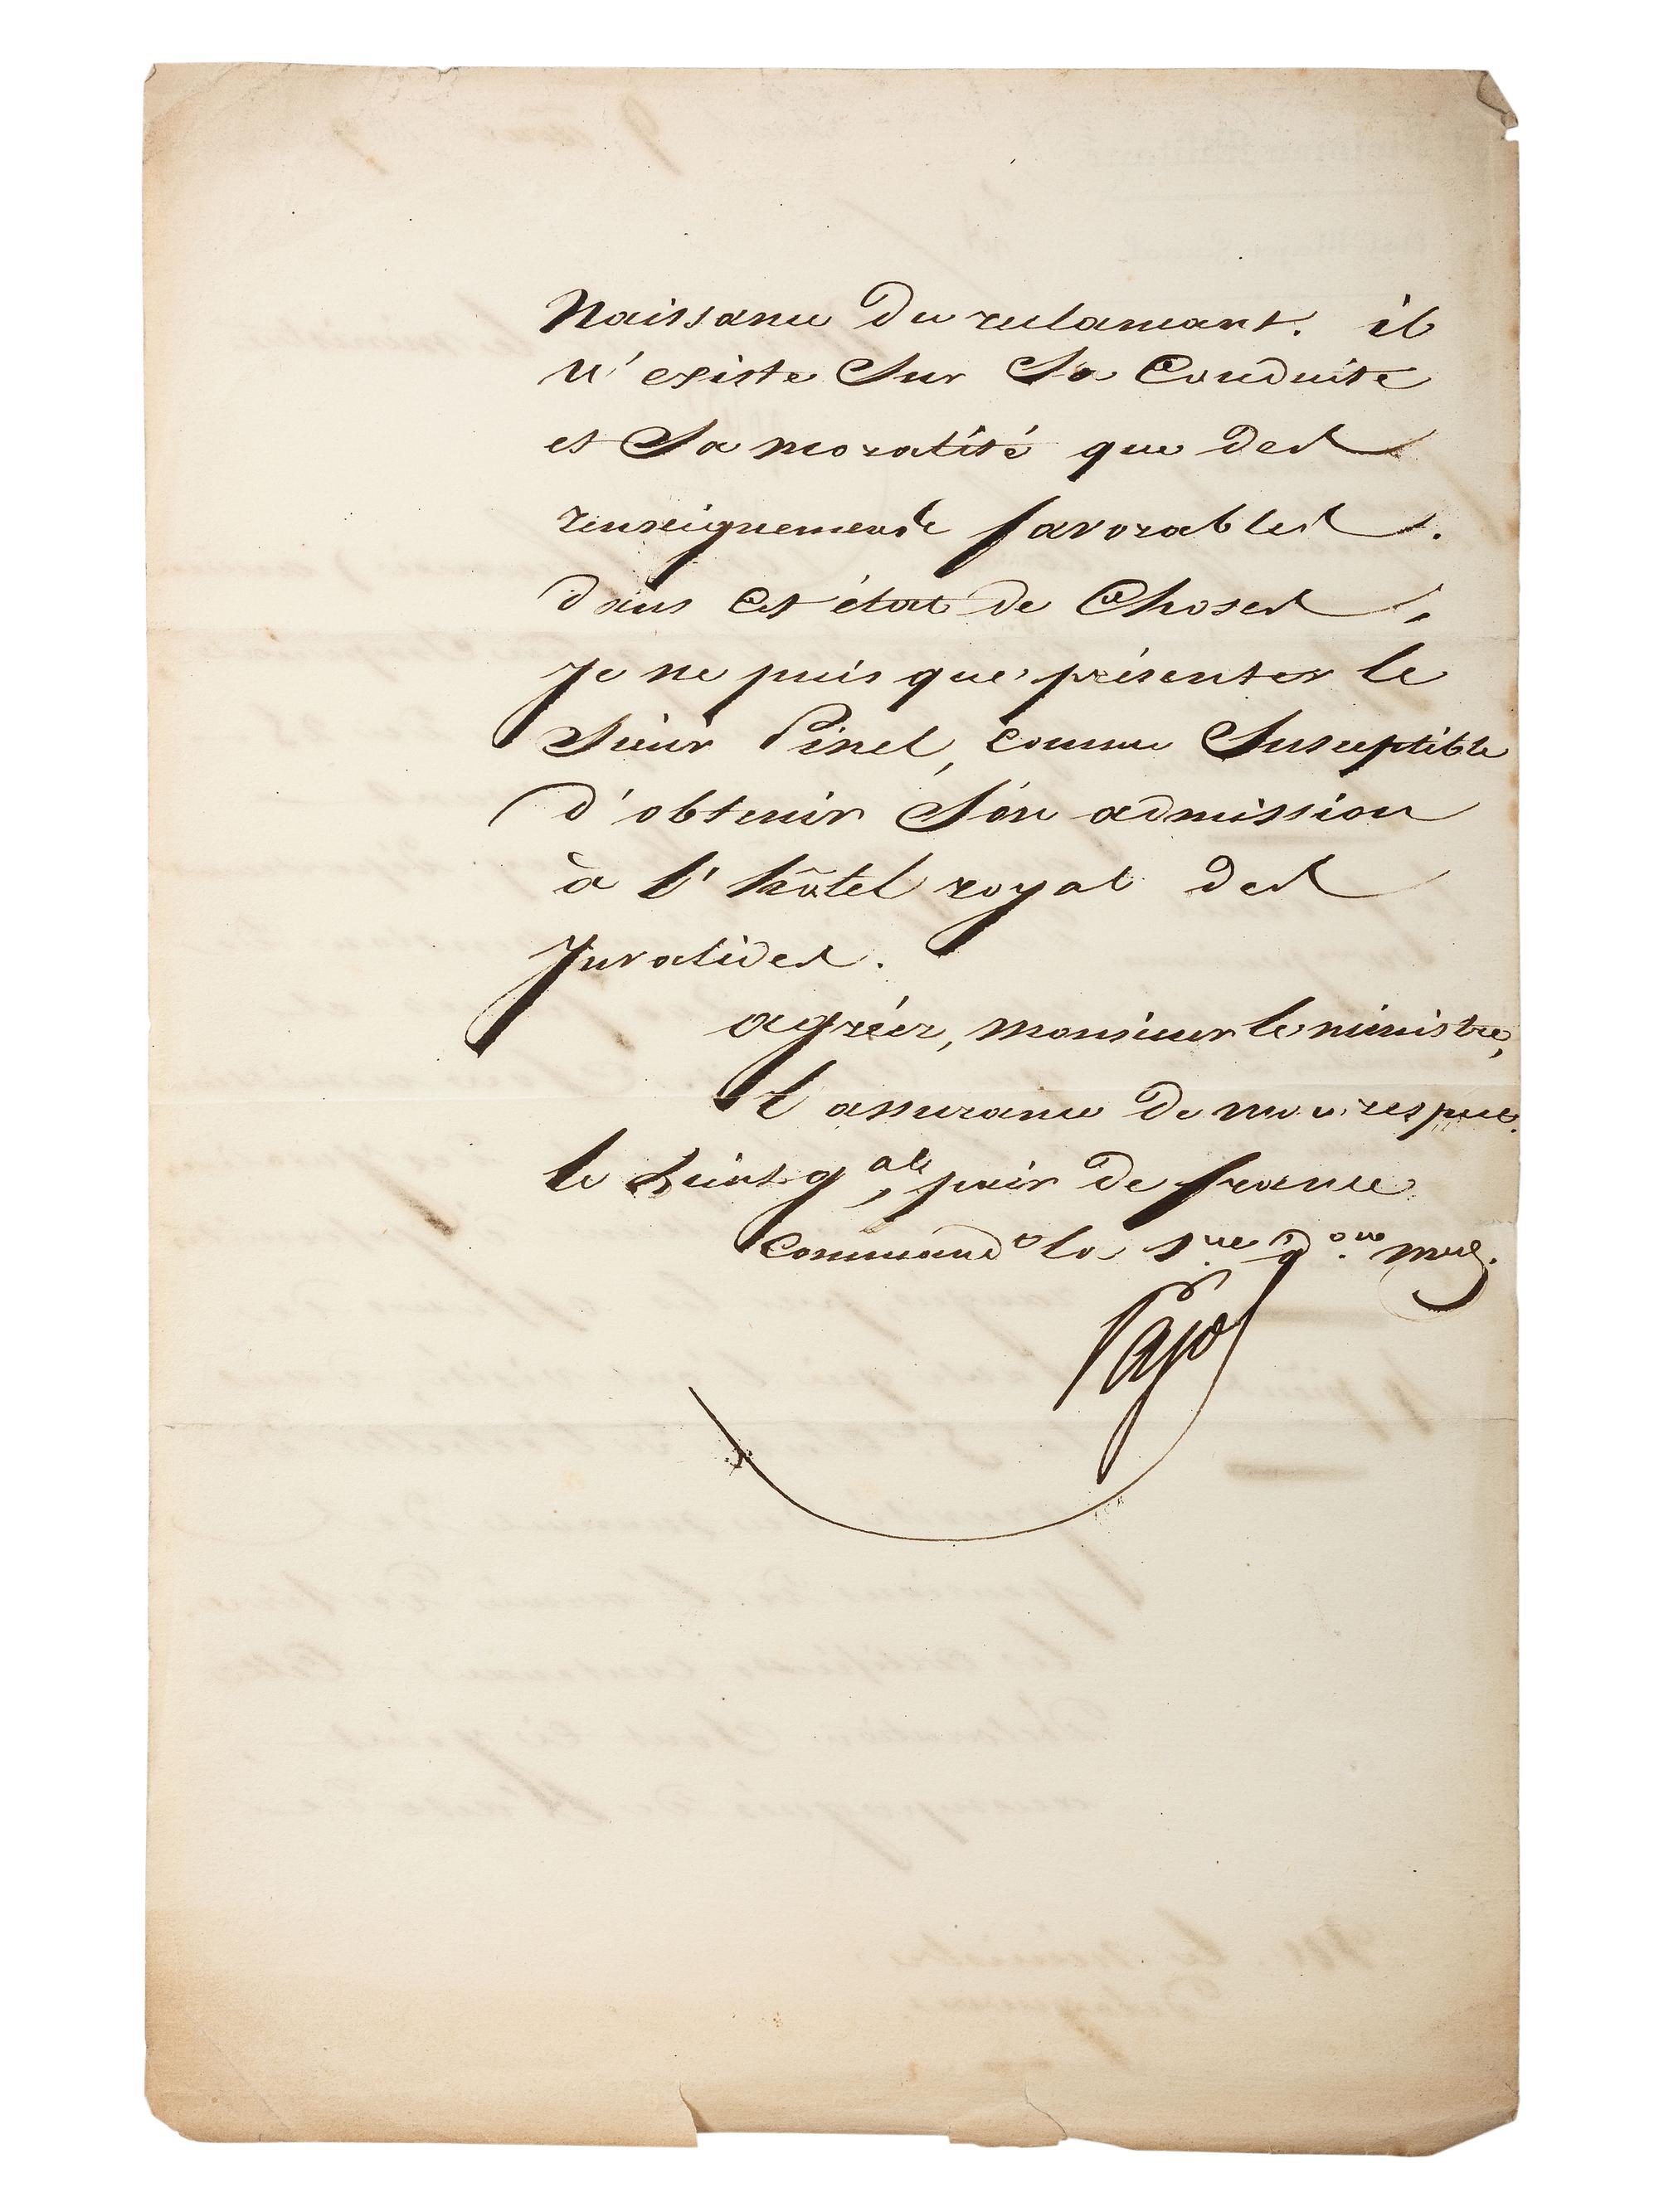 Naissance du reclamant. il
n'existe sur sa Conduite
et sa moralité que des
renseignements favorables.
dans cet état de Choses,
je ne puis que présenter le
Sieur Pinel, comme Susceptible
d'obtenir son admission
à l'hôtel royal des
Invalides.
agréer, monsieur le ministre,
l'assurance de mon respect.
le Lieut. g.ale, pair de france
Command.t la 1.re d.on m.re.
Pajol